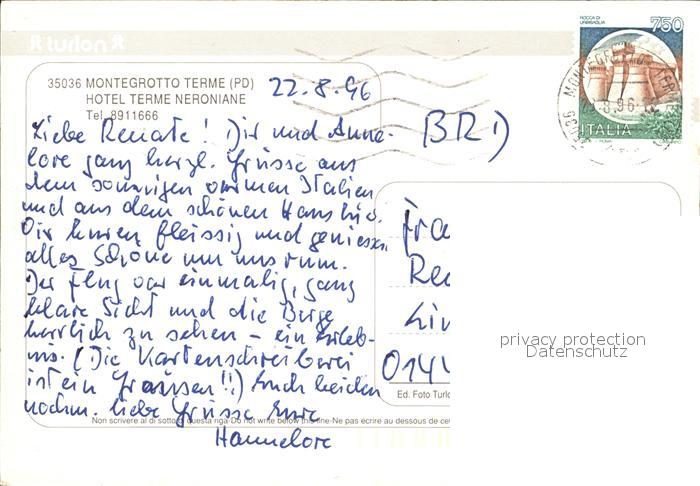 turlon
ROCCA DI URBISAGLIA
750
ITALIA
35036 MONTEGROTTO TERME (PD)
HOTEL TERME NERONIANE
Tel. 8911666
22.8.96
Liebe Renate! Dir und Anne-
lore ganz herzl. Grüsse aus
dem sonnigen warmen Italien
und aus dem schönen Haus hier.
Wir kuren fleissig und geniessen
alles Schöne um uns rum.
Der Flug war einmalig, ganz
klare Sicht und die Berge
herrlich zu sehen - ein Erleb-
nis. (Die Kartenschreiberei
ist ein Grausen!!) Euch beiden
nochm. liebe Grüsse Eure
Hannelore
BRD
Fra
Re
Lin
014
Ed. Foto Turlo
Non scrivere al di sotto di questa riga-Do not write below this line-Ne pas écrire au dessous de cet
privacy protection
Datenschutz